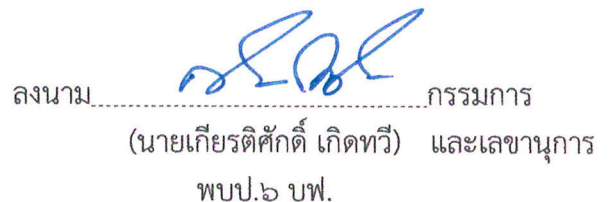 ลงนาม..........................................กรรมการ
(นายเกียรติศักดิ์ เกิดทวี) และเลขานุการ
พบป.๖ บฟ.